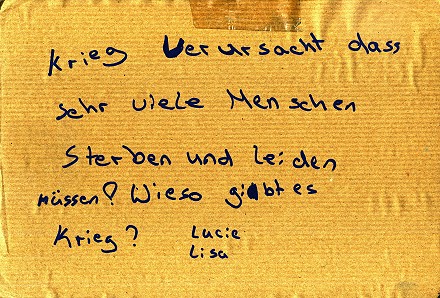 Krieg Verursacht dass
sehr viele Menschen
Sterben und leiden
müssen? Wieso gibt es
Krieg? Lucie
Lisa